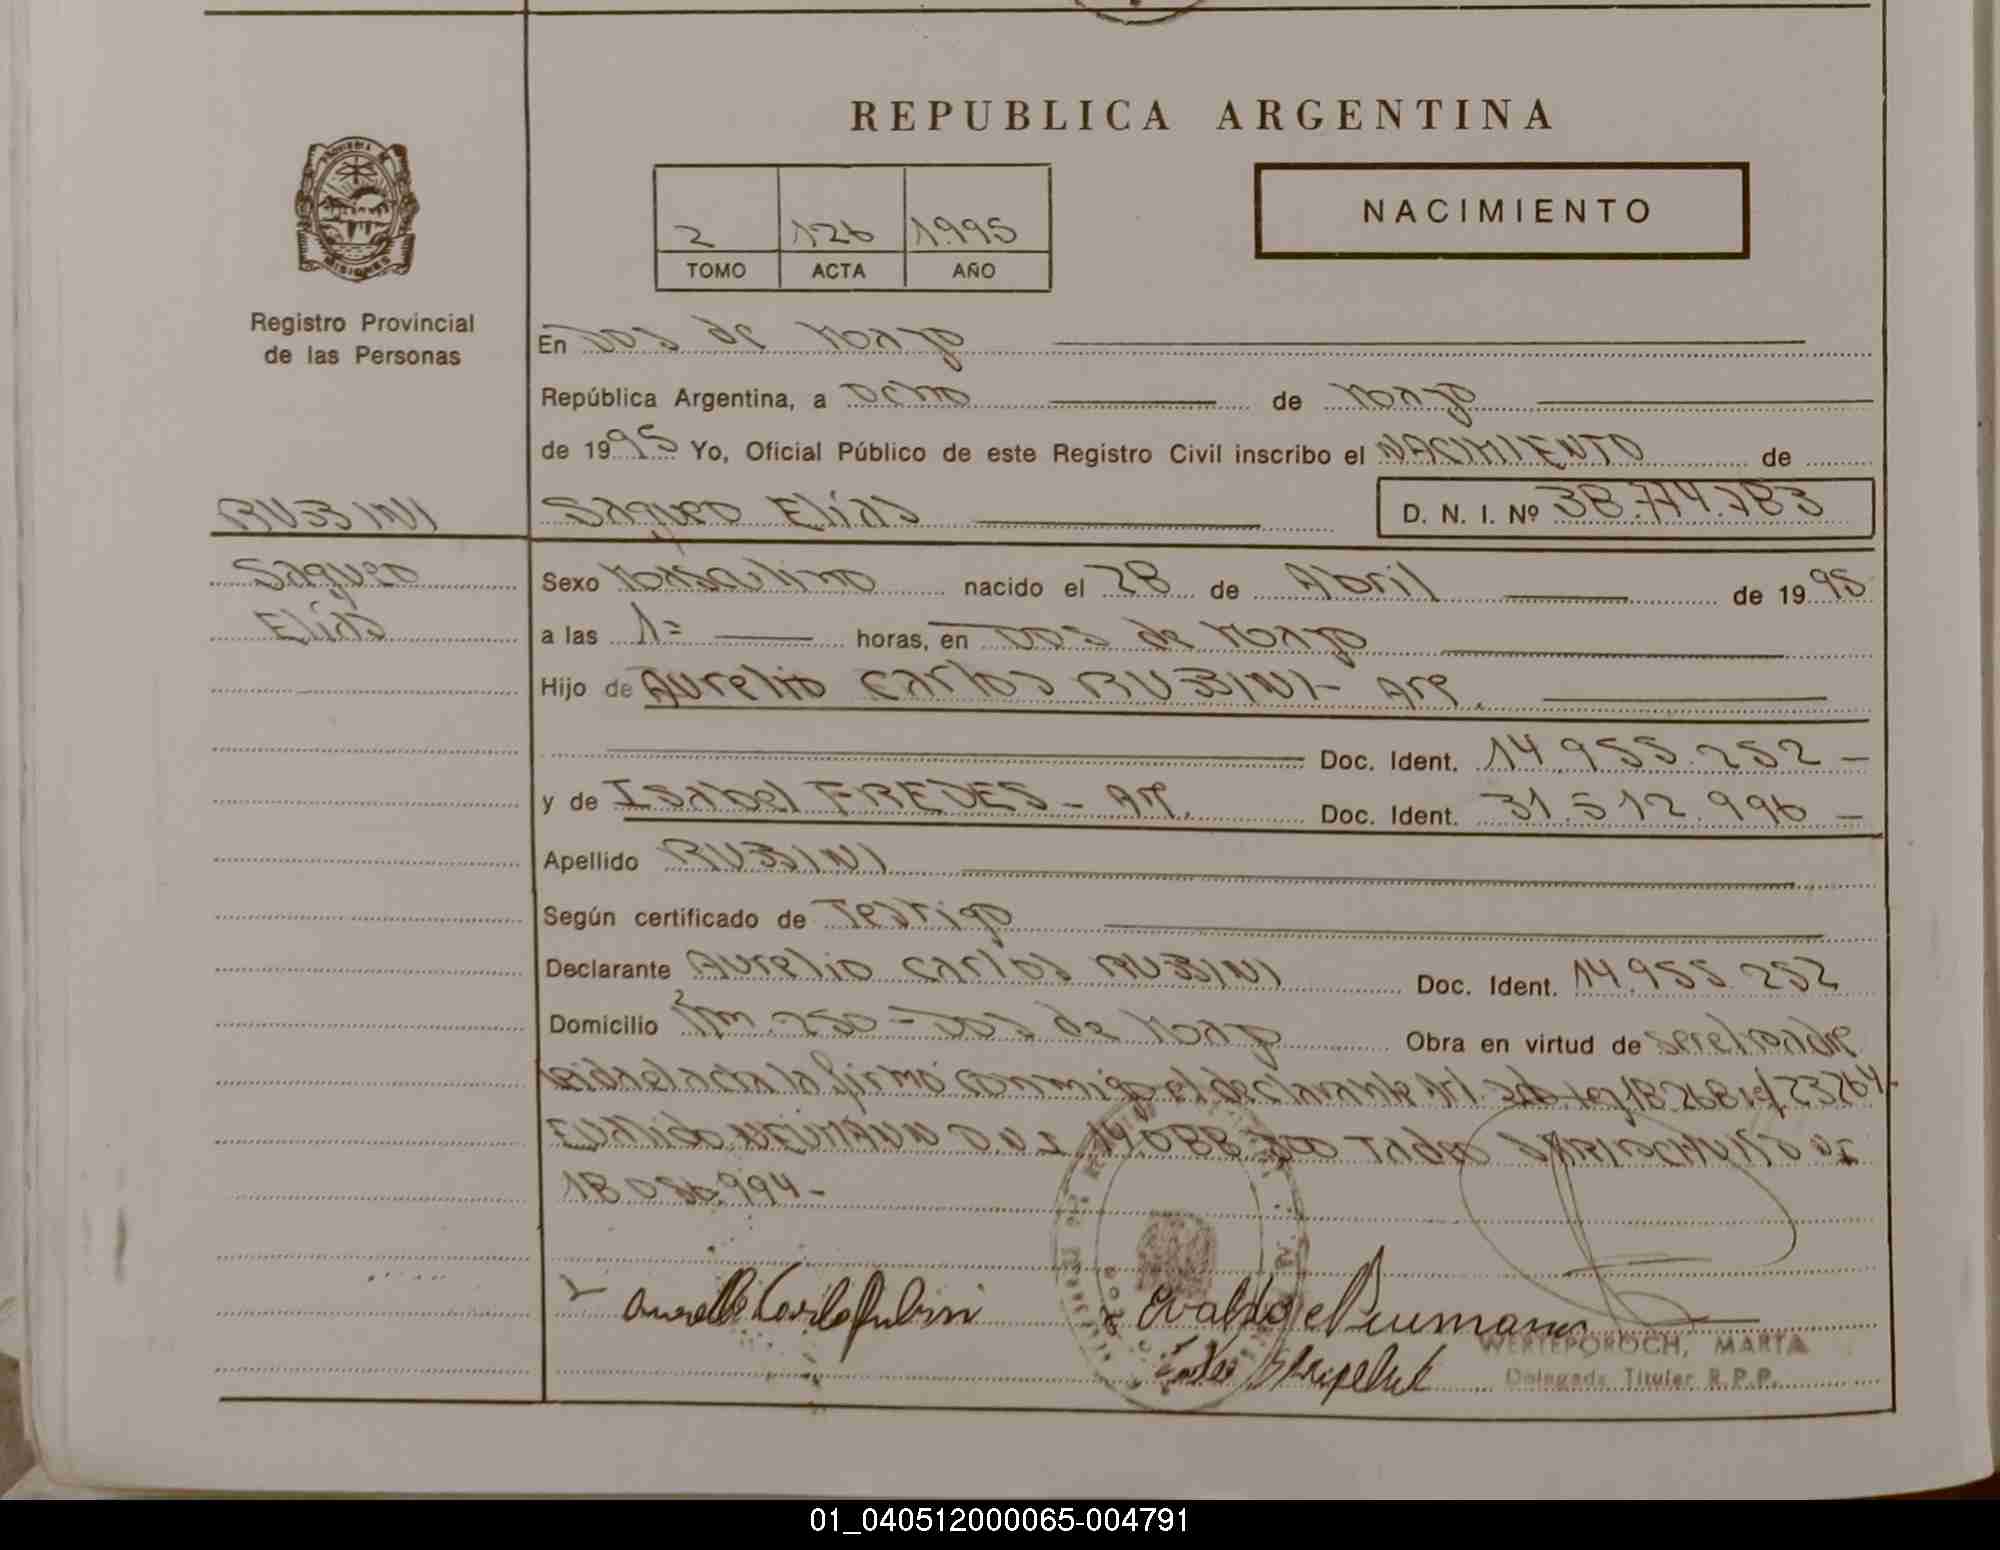 REPUBLICA ARGENTINA
PROVINCIA DE MISIONES
Registro Provincial
de las Personas
2 126 1995
TOMO ACTA AÑO
NACIMIENTO
En Dos de Mayo
República Argentina, a Ocho de Mayo
de 1995 Yo, Oficial Público de este Registro Civil inscribo el NACIMIENTO de
RUBBINI
Saqueo Elías D. N. I. Nº 38.774.783
Saqueo
Elías
Sexo Masculino nacido el 28 de Abril de 1995
a las 1= horas, en Dos de Mayo
Hijo de Aurelio Carlos RUBBINI - Arg.
Doc. Ident. 14.955.252 -
y de Isabel FREDES - Arg. Doc. Ident. 31.512.996 -
Apellido RUBBINI
Según certificado de Testigo
Declarante Aurelio Carlos RUBBINI Doc. Ident. 14.955.252
Domicilio Km. 250 = Dos de Mayo Obra en virtud de ser el padre
leida el acta la firmó conmigo el declarante Art. ley 18.268 ley 23264-
Evaldo NEUMANN D.N.I. 14.088.300 Tadeo D.N.I
18.036.994 -
Aurelio Carlos Rubini
Evaldo Neumann
WERLEPOROCH, MARTA
Delegada Titular R.P.P.
01_040512000065-004791